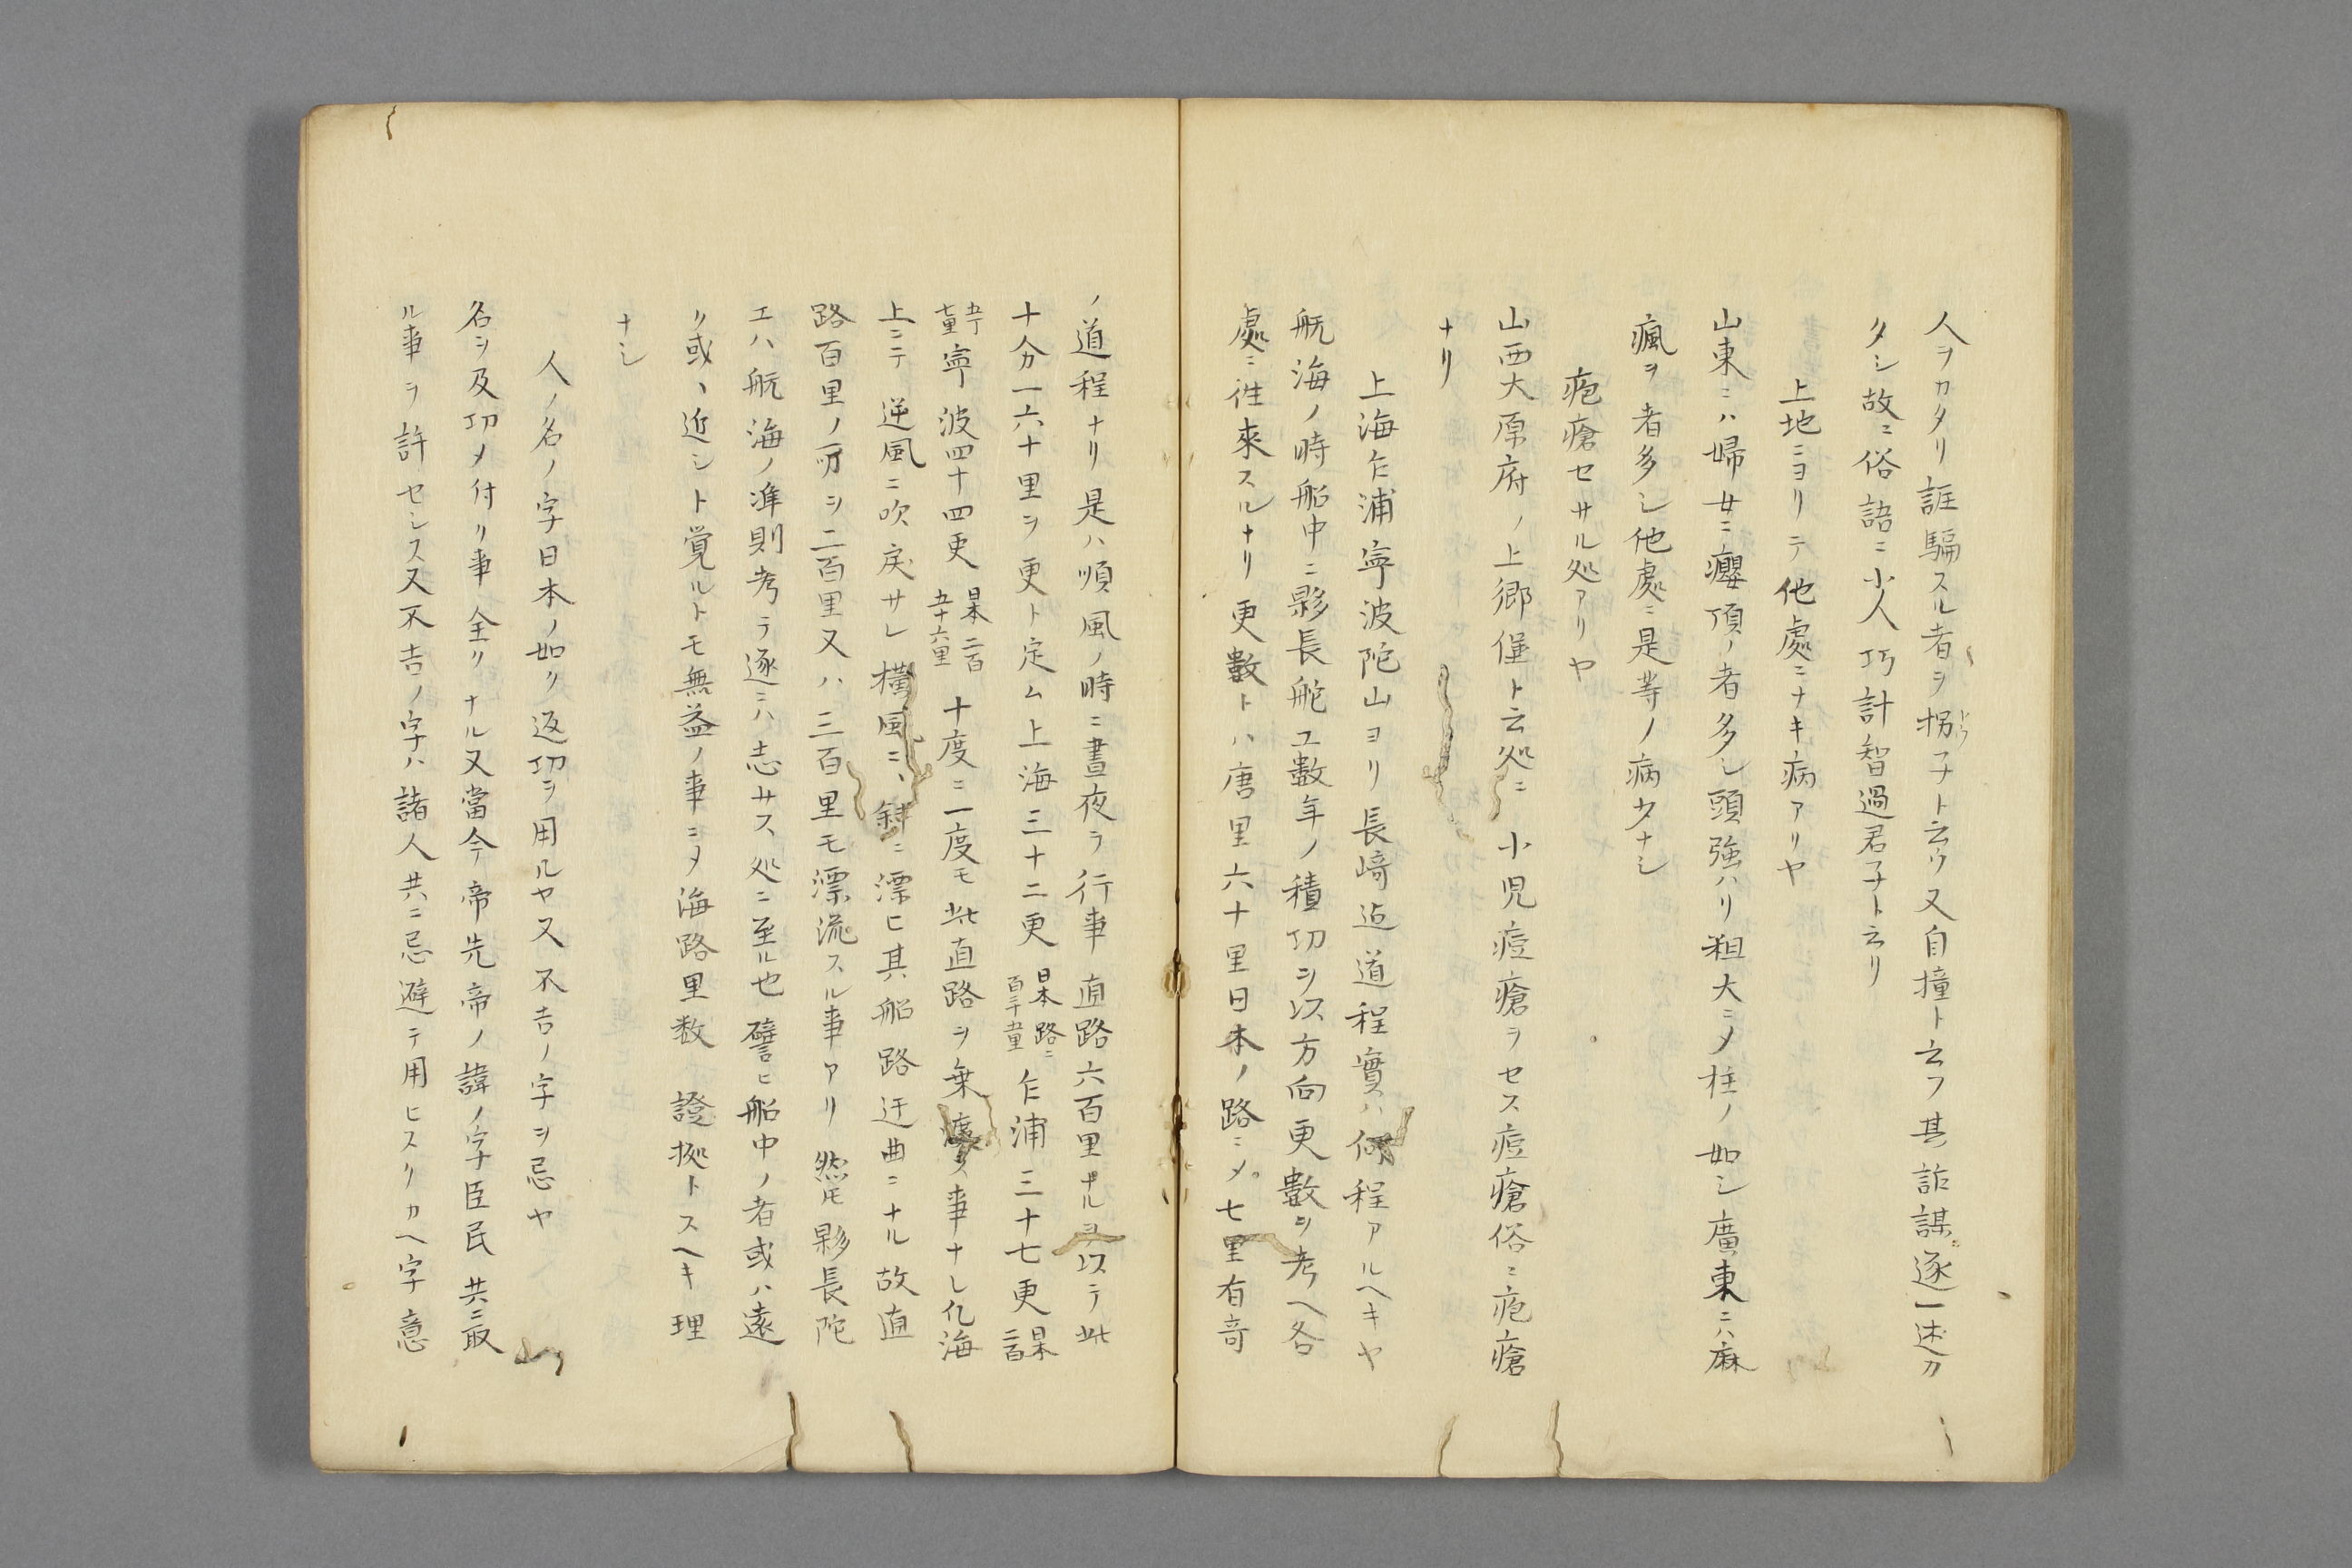 人ヲカタリ誆騙スル者ヲ拐子ト云ウ又自撞ト云フ其詐謀逐一述カ
タシ故ニ俗語ニ小人巧計智過君子ト云リ
上地ニヨリテ他處ニナキ病アリヤ
山東ニハ婦女ニ癭頂ノ者多シ頭強ハリ粗大ニメ柱ノ如シ廣東ニハ麻
瘋ヲ者多シ他處ニ是等ノ病少ナシ
疱瘡セサル処アリヤ
山西大原府ノ上郷僅ト云処ニ小児痘瘡ヲセス痘瘡俗ニ疱瘡
ナリ
上海乍浦寧波陀山ヨリ長﨑迠道程實ハ何程アルヘキヤ
航海ノ時船中ニ夥長舵工數年ノ積切ヲ以方向更數ヲ考ヘ各
處ニ徃來スルナリ更數トハ唐里六十里日本ノ路ニメ七里有奇
ノ道程ナリ是ハ順風ノ時ニ晝夜ヲ行事直路六百里ナルヲ以テ此
十分一六十里ヲ更ト定ム上海三十二更日本路ニ百三十五里乍浦三十七更日本二百
五十七里寧波四十四更日本二百五十六里十度ニ一度モ此直路ヲ乗渡ス事ナし化海
上ニテ逆風ニ吹戻サレ横風ニ、斜ニ漂ヒ其船路迂曲ニナル故直
路百里ノ所ヲ二百里又ハ三百里モ漂流スル事アリ然𪜈夥長陀
エハ航海ノ準則考ヲ逐ニハ志サス処ニ至ル也譬ヒ船中ノ者或ハ遠
リ或ハ近シト覚ルトモ無益ノ事ニメ海路里数證拠トスヘキ理
ナシ
人ノ名ノ字日本ノ如リ返切ヲ用ルヤ又不吉ノ字ヲ忌ヤ
名ヲ及切メ付リ事全リナル又當今帝先帝ノ諱ノ字臣民共ニ取
ル事ヲ許セシス又不吉ノ字ハ諸人共ニ忌避テ用ヒスリカヘ字意